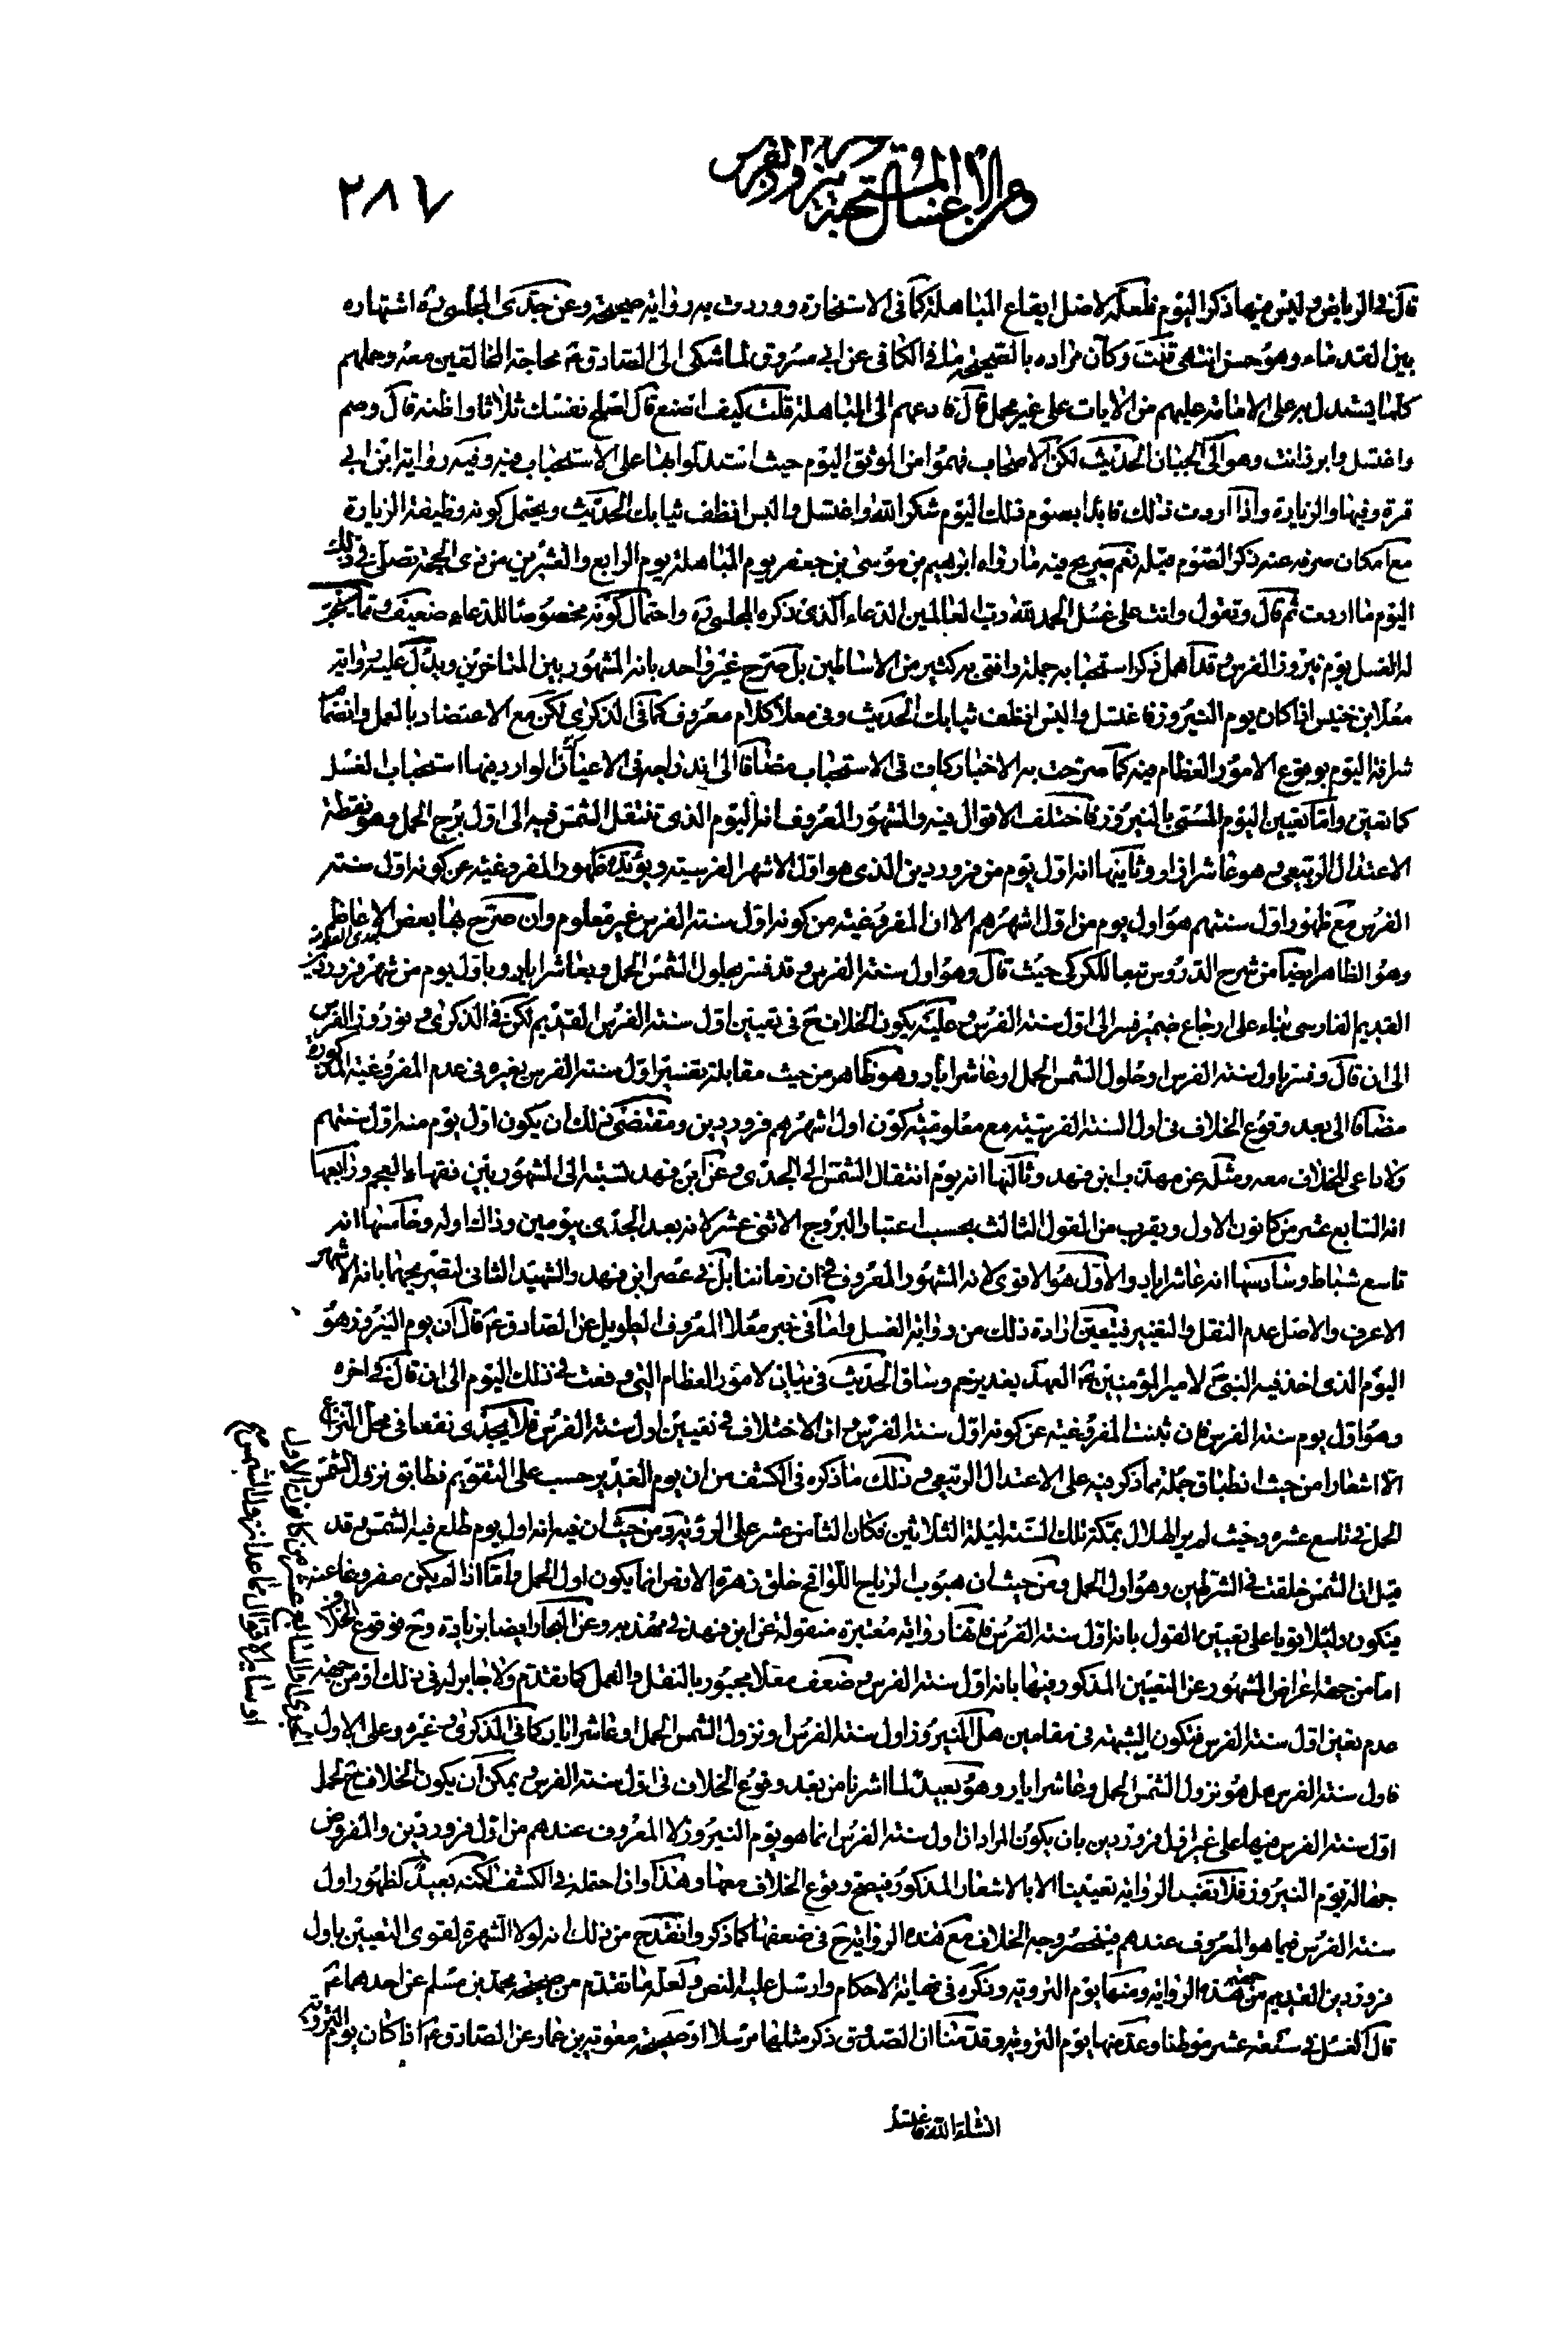 ومن الاغسال المستحبة نيروز الفرس
٢٨٧
قال في الرياض وليس فيها ذكر اليوم فلعله لاصل ايقاع المباهلة كما في الاستخارة ووردت به رواية صحيحة وعن جدي المجلسي ره اشتهاره
بين القدماء وهو حسن انتهى قلت وكان مراده بالصحيحة ما في الكافي عن ابي مسروق لما شكى الى الصادق ع محاجة المخالفين معه وحملهم
كلما يستدل به على الامامة عليهم من الايات على غير محمل قال فادعهم الى المباهلة قلت كيف اصنع قال اصلح نفسك ثلاثا واظنه قال وصم
واغتسل وابرز انت وهو الى الجبان الحديث لكن الاصحاب فهموا من الموثق اليوم حيث استدلوا بها على الاستحباب فيه وفيه رواية ابن ابي
قرة وفيها والزيادة واذا اردت ذلك فابدا بصوم ذلك اليوم شكرا لله واغتسل والبس انظف ثيابك الحديث ويحتمل كونه وظيفة الزيارة
مع امكان صرفه عنه ذكر الصوم قبله نعم صريح فيه ما رواه ابراهيم بن موسى بن جعفر يوم المباهلة يوم الرابع والعشرين من ذي الحجة تصلى في ذلك
اليوم ما اردت ثم قال وتقول وانت على غسل الحمد لله رب العالمين الدعاء الذي ذكره المجلسي ره واحتمال كونه مخصوصا للدعاء ضعيف ومما يستحب
له الغسل يوم نيروز الفرس وقد اهمل ذكر استحبابه جملة وافتى به كثير من الاساطين بل صرح غير واحد بانه المشهور بين المتاخرين ويدل عليه رواية
معلا بن خنيس اذا كان يوم النيروز فاغتسل والبس انظف ثيابك الحديث وفي معلا كلام معروف كما في الذكرى لكن مع الاعتضاد بالعمل وانضمام
شرافة اليوم بوقوع الامور العظام فيه كما صرحت به الاخبار كاف في الاستحباب مضافا الى اندراجه في الاعياد الوارد فيها استحباب الغسل
كما تعين واما تعيين اليوم المسمى بالنيروز فاختلف الاقوال فيه والمشهور المعروف انه اليوم الذي تنتقل الشمس فيه الى اول برج الحمل وهو نقطة
الاعتدال الربيعي وهو عاشر اذار وثانيها انه اول يوم من فروردين الذي هو اول الاشهر الفرسية ويؤيده ظهور المفروغية عن كونه اول سنة
الفرس مع ظهور اول سنتهم هو اول يوم من اول اشهرهم الا ان المفروغية من كونه اول سنة الفرس غير معلوم وان صرح بها بعض الاعاظم
وهو الظاهر ايضا من شرح الدروس تبعا للكركي حيث قال وهو اول سنة الفرس وقد فسر بحلول الشمس الحمل وبعاشر ايار وباول يوم من شهر فروردين
القديم الفارسي بناء على ارجاع ضمير فسر الى اول سنة الفرس وعليه يكون الخلاف ح في تعيين اول سنة الفرس القديم لكن في الذكرى ونوروز الفرس
الى ان قال وفسر باول سنة الفرس او حلول الشمس الحمل او عاشر ايار وهو ظاهر من حيث مقابلة تفسير اول سنة الفرس بغيره في عدم المفروغية المذكورة
مضافا الى بعد وقوع الخلاف في اول السنة الفرسية مع معلومية كون اول اشهرهم فروردين ومقتضى ذلك ان يكون اول يوم منه اول سنتهم
ولا داعي للخلاف معه ومثله عن مهذب ابن فهد وثالثها انه يوم انتقال الشمس الى الجدي وعن ابن فهد نسبته الى المشهور بين فقهاء العجم ورابعها
انه السابع عشر من كانون الاول ويقرب من القول الثالث بحسب اعتبار البروج الاثنى عشر لانه بعد الجدي بيومين وذاك اوله وخامسها انه
تاسع شباط وسادسها انه عاشر ايار والاول هو الاقوى لانه المشهور المعروف في زماننا بل في عصر ابن فهد والشهيد الثاني لتصريحهما بانه الاشهر
الاعرف والاصل عدم النقل والتغيير فيتعين ارادة ذلك من رواية الغسل واما في خبر معلا المعروف الطويل عن الصادق ع قال ان يوم النيروز هو
اليوم الذي اخذ فيه النبي ص لامير المؤمنين ع العهد بغدير خم وساق الحديث في بيان الامور العظام التي وقعت في ذلك اليوم الى ان قال في اخره
وهو اول يوم سنة الفرس فان ثبتت المفروغية عن كونه اول سنة الفرس وان الاختلاف في تعيين اول سنة الفرس فلا يجدى نفعا في محل النزاع
الا اشعارا من حيث انطباق جملة مما ذكر فيه على الاعتدال الربيعي وذلك ما ذكره في الكشف من ان يوم الغدير حسب على التقويم فطابق نزول الشمس
الحمل في تاسع عشره وحيث لم ير الهلال بمكة تلك السنة ليلة الثلاثين فكان الثامن عشر على الرؤية ومن حيث ان فيه انه اول يوم طلع فيه الشمس وقد
قيل ان الشمس خلقت في الشرطين وهو اول الحمل ومن حيث ان هبوب الرياح اللواقح خلق زهرة الارض انما يكون اول الحمل واما اذا لم يكن مفروغا عنه
فيكون دليلا قويا على تعيين القول بانه اول سنة الفرس فانها رواية معتبرة منقولة عن ابن فهد في مهذبه وعن البحار ايضا بزيادة وح فوقوع الخلاف
اما من جهة اعراض المشهور عن التعيين المذكور فيها بانه اول سنة الفرس وضعف معلا مجبور بالنقل والعمل كما تقدم ولا جابر له في ذلك او من جهة
عدم تعين اول سنة الفرس فتكون الشبهة في مقامين هل النيروز اول سنة الفرس او نزول الشمس الحمل او عاشر ايار كما في الذكرى وغيره وعلى الاول
فاول سنة الفرس هل هو نزول الشمس الحمل وعاشر ايار وهو بعيد لما اشرنا من بعد وقوع الخلاف في اول سنة الفرس ويمكن ان يكون الخلاف ح لحمل
اول سنة الفرس فيها على غير اول فروردين بان يكون المراد ان اول سنة الفرس انما هو يوم النيروز لا المعروف عندهم من اول فروردين والمفروض
جهالة يوم النيروز فلا تفيد الرواية تعيينا الا بالاشعار المذكور فيصح وقوع الخلاف معها وهذا وان احتمله في الكشف لكنه بعيد لظهور اول
سنة الفرس فيما هو المعروف عندهم فينحصر وجه الخلاف مع هذه الرواية ح في ضعفها كما ذكر وانقدح من ذلك انه لولا الشهرة لقوى التعيين باول
فروردين القديم من جهة هذه الرواية ومنها يوم التروية وذكره في نهاية الاحكام وارسل عليه النص ولعله ما تقدم من صحيحة محمد بن مسلم عن احدهما ع
قال الغسل في سبعة عشر موطنا وعد منها يوم التروية وقدمنا ان الصدوق ذكر مثلها مرسلا او صحيحة معوية بن عمار عن الصادق ع اذا كان يوم التروية
انشاء الله فاغتسل